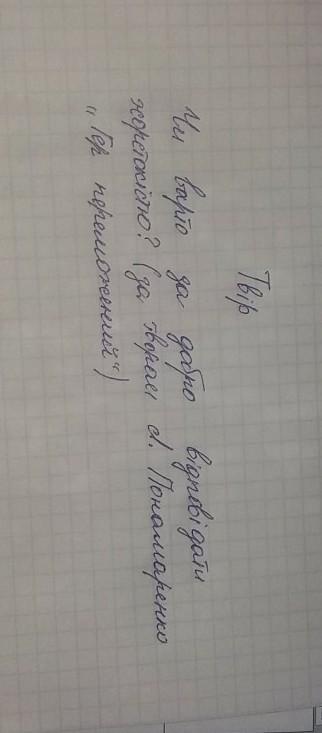 Твір
Чи варто за добро відповідати
жорстокістю? (за твором Л. Понамаренко
„Гер переможений")